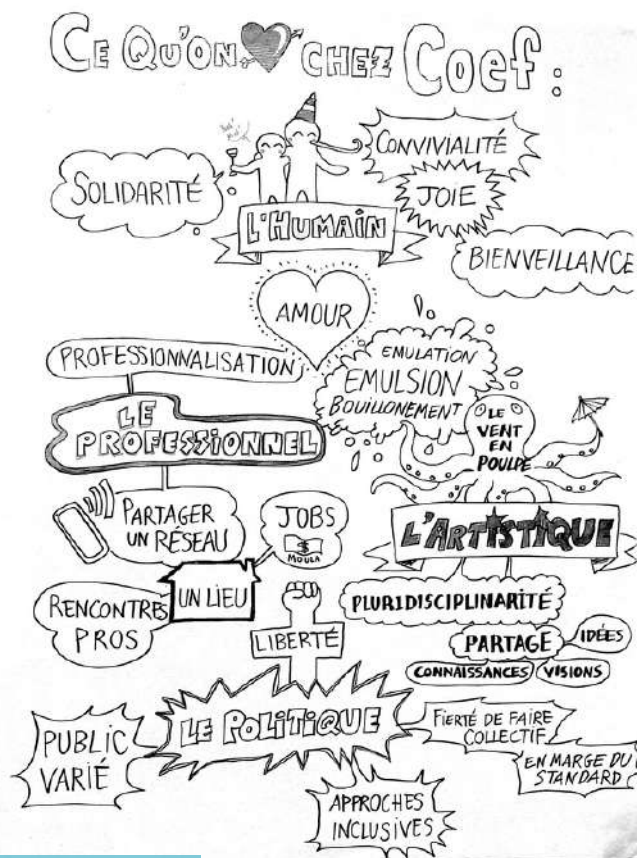 CE QU'ON CHEZ Coef :
SOLIDARITÉ
CONVIVIALITÉ
JOIE
L'HUMAIN
BIENVEILLANCE
AMOUR
PROFESSIONNALISATION
LE
PROFESSIONNEL
EMULATION
EMULSION
BOUILLONEMENT
LE
VENT
EN
POULPE
PARTAGER
UN RÉSEAU
JOBS
$
MOULA
L'ARTISTIQUE
RENCONTRES
PROS
UN LIEU
LIBERTÉ
PLURIDISCIPLINARITÉ
PARTAGE
IDÉES
CONNAISSANCES
VISIONS
LE POLITIQUE
PUBLIC
VARIÉ
FIERTÉ DE FAIRE
COLLECTIF
EN MARGE DU
STANDARD
APPROCHES
INCLUSIVES